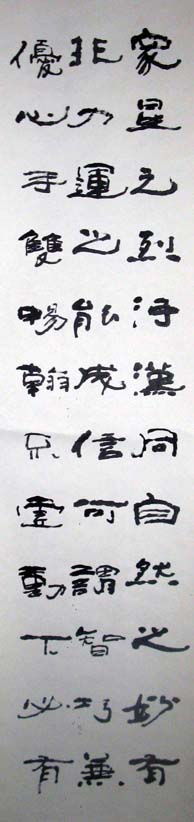 家星之烈河漢同自然之妙有
非力運之能成信可謂智巧兼
優心手雙暢翰不虛動下必有